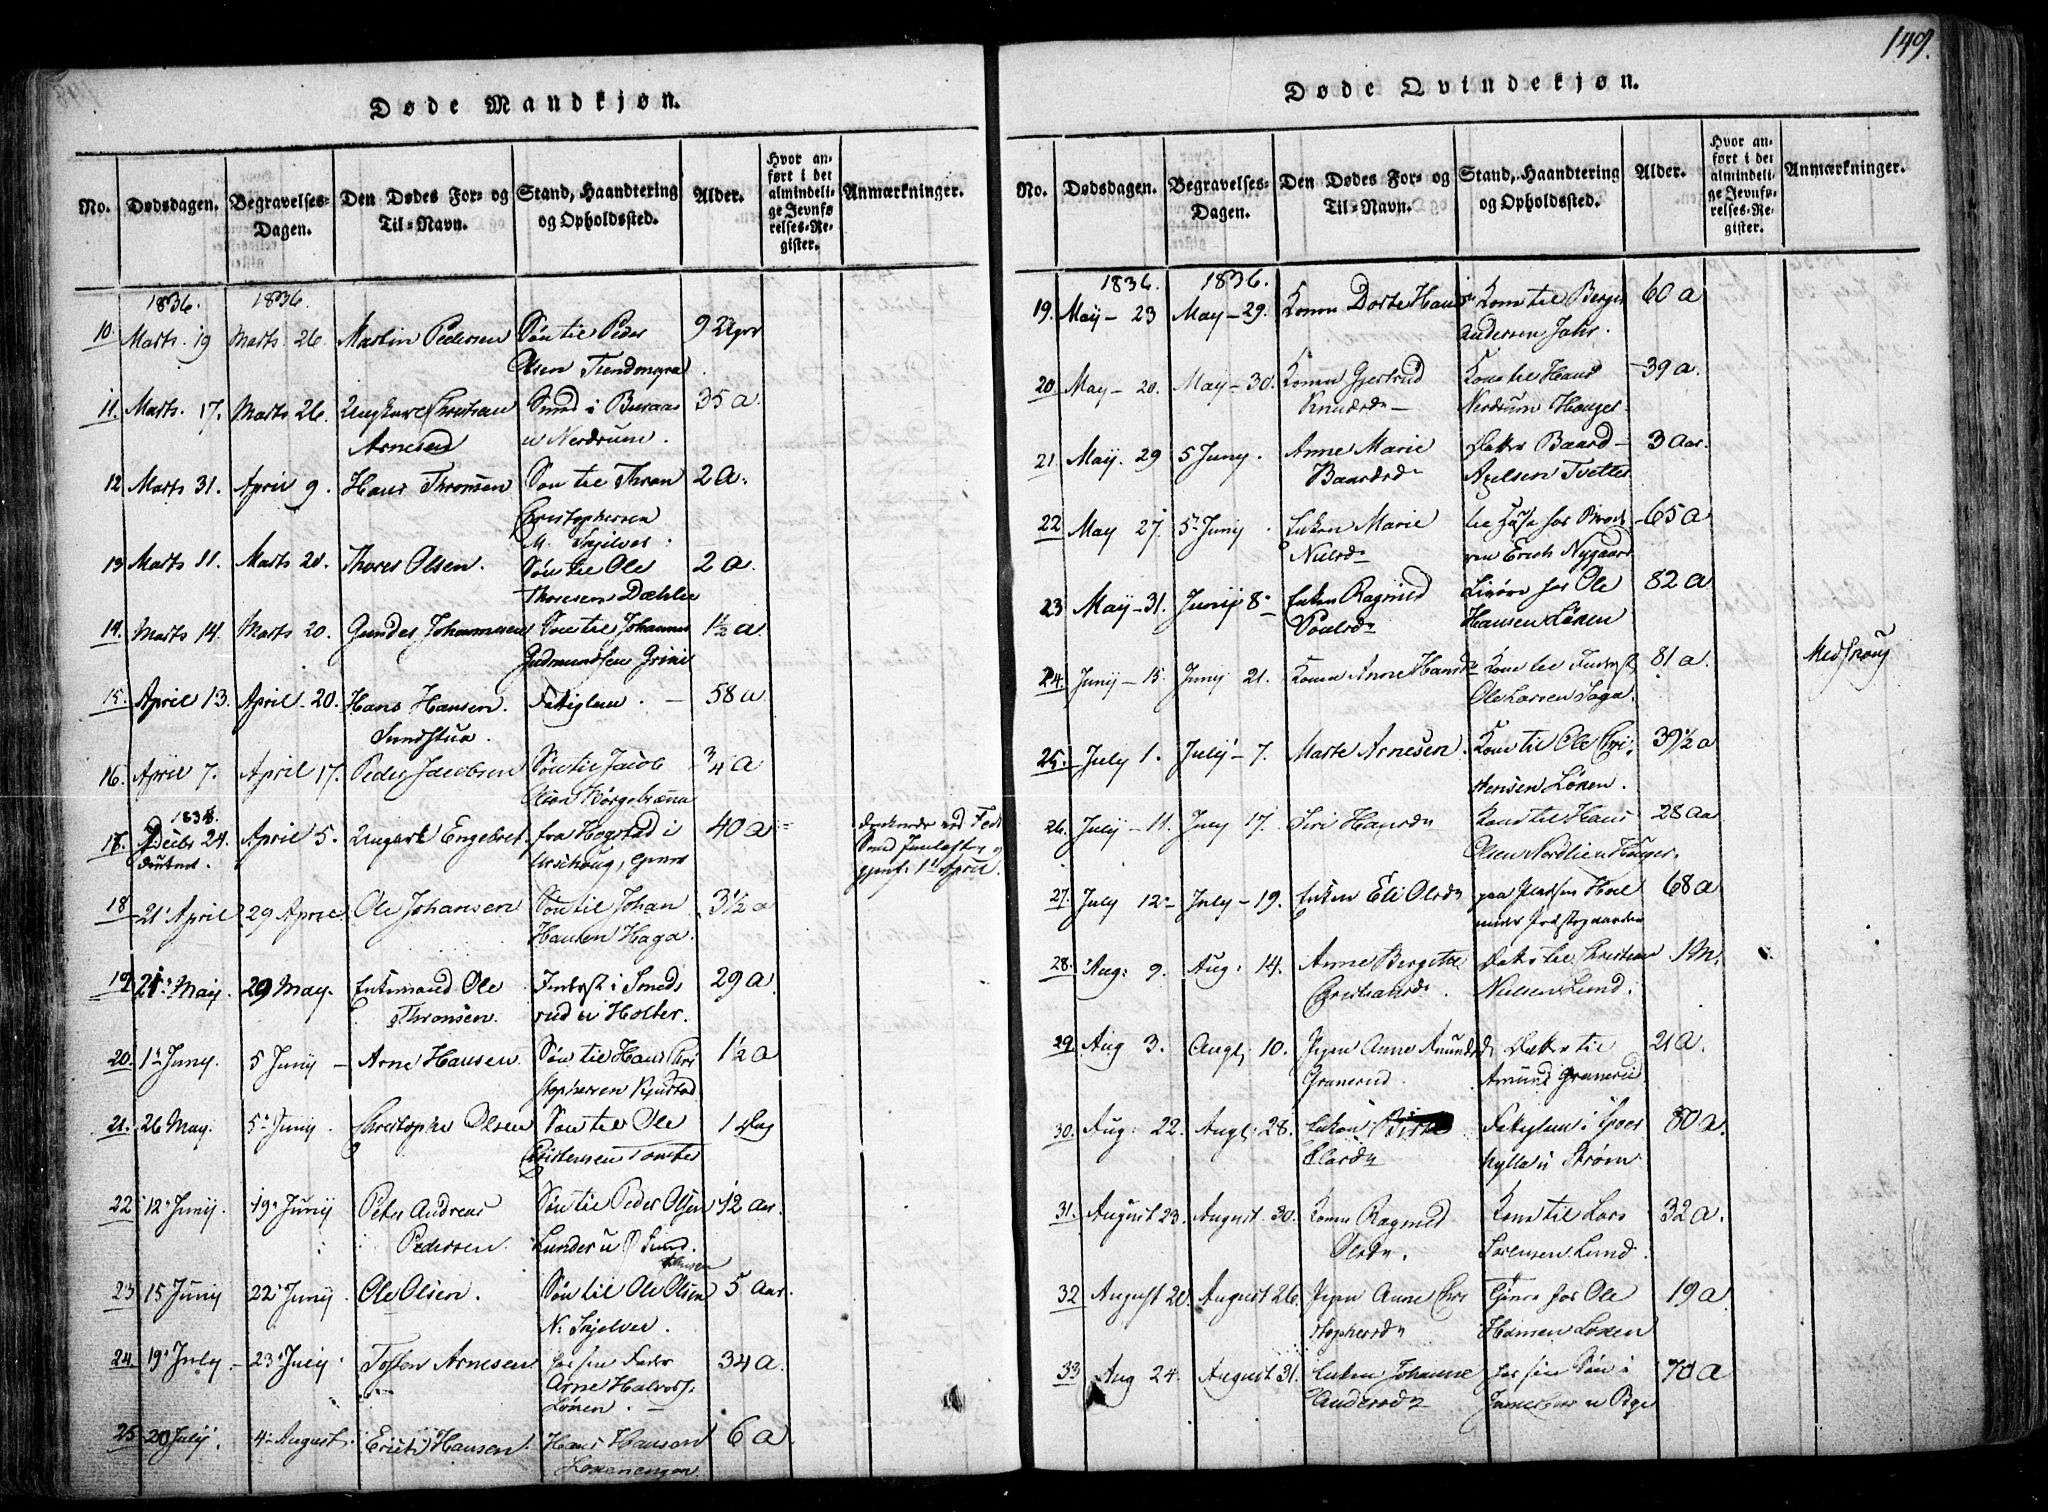 149.
Døde Mandkjøn.
No. Dødsdagen. Begravelses-Dagen. Den Dødes For- og Til-Navn. Stand, Haandtering og Opholdssted. Alder. Hvor anført i det almindelige Jevnførelses-Register. Anmærkninger.
1836. 1836.
10. Marts. 19 Marts. 26. Martin Pedersen Søn til Peder 9
Olsen
11. Marts. 17. Marts 26. Ungkarl Christian Smed i 35 a.
Arnesen u Nerdrum.
12 Marts 31. April 9. Hans Thronsen Søn til Thron 2 a.
Christophersen
M. Skjelver.
13 Marts 11. Marts 20. Thores Olsen. Søn til Ole 2 a.
Thoresen Dæhlie
14. Marts 14. Marts 20. Gunder Johannesen Søn til Johannes 1½ a
Gudmundsen Grini
15. April 13. April. 20. Hans Hansen Fattiglem. 58 a
Sundstua.
16. April 7. April 17. Peder Jacobsen Søn til Jacob ¾ a
Olsen
17. Decbr 24. April 5. Ungkarl Engebret fra Hogstad i 40 a
druknet.
18 21 April 29 April Ole Johansen Søn til Johan 3½ a
Hansen Haga.
19. 21 May. 29 May. Enkemand Ole Inderst i Smeds 29 a
Thronsen. rud u Holter.
20. 1 Juny. 5 Junÿ Arne Hansen Søn til Hans Chri 1½ a
stophersen
21. 26 May. 5 Junÿ. Christopher Olsen Søn til Ole 1 Dag
Christensen Tomter
22 12 Junÿ. 19 Junÿ Peter Andreas Søn til Peder Olsen 12 aar.
Pedersen. Lunder u
23 15 Junÿ 22 Junÿ. Ole Olsen. Søn til Ole Olsen 5 aar.
N. Skjelver.
24. 19 July 23 July Tosten Arnesen hos sin Fader 34 a.
Arne Halvors.
Løken.
25 20 July. 4 August. Erich Hansen. Hans Hansen 6 a.
Løkenengen
Døde Qvindekjøn.
No. Dødsdagen. Begravelses-Dagen. Den Dødes For- og Til-Navn. Stand, Haandtering og Opholdssted. Alder. Hvor anført i det almindelige Jevnførelses-Register. Anmærkninger.
1836. 1836.
19. Maÿ 23 May 29. Konen Dorte Hans Kone til Berger 60 a
Andersen Jahr.
20 May 20. May 30. Konen Gjertrud Kone til Hans 39 a.
Knudsd Nerdrum Hauger
21 Maÿ. 29 5 Juny. Anne Marie Datter Baard 3 Aar.
Baardsd Axelsen Tvetter
22 May 27. 5 Junÿ. Enken Marie til Huse hos 65 a
Nielsd Erich Nygaard
23 Maÿ 31. Juny 8 Enken Ragnild hos Ole 82 a
Poulsd Hansen Løken
24. Junÿ 15. Juny 21. Konen Anne Hansd Kone til Inderst 81 a. Medstroug
Ole Larsen Saga.
25. July 1. July 7. Marte Arnesen Kone til Ole Chri 39½ a
stensen Løken.
26. July 11. July 17. Siri Hansd Kone til Hans 28 aa
Olsen Nordlie u Hauger.
27. July 12 July 19. Enken Eli Olsd paa Pladsen 68 a
under Præstegaarden
28. Aug: 9. Aug: 14. Anne Bergitte Datter til Christian 1 M.
Christiansd. Nielsen Lund.
29 Aug 3. Augt. 10. Pigen Anne Amundsd Datter til 21 a.
Granerud. Amund Granerud
30. Aug: 22. Augt. 28. Enken Fattiglem i 80 a.
Olasd u Strøm
31. August 23. August 30. Konen Ragnild Kone til Lars 32 a.
Olsd. Sørensen Lund.
32 August 20. August 26. Pigen Anne Chri Tjener hos Ole 19 a
stophersd Hansen Løken
33 Aug 24. August 31. Enken Johanne hos sin Søn i 70 a
Andersd